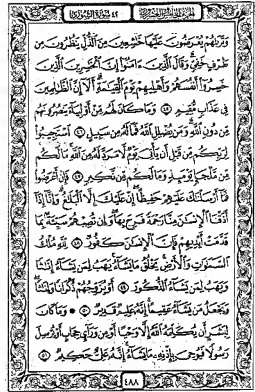 الجزء الخامس والعشرون ٤٢ سورة الشورى
وَتَرَىٰهُمْ يُعْرَضُونَ عَلَيْهَا خَٰشِعِينَ مِنَ ٱلذُّلِّ يَنظُرُونَ مِن
طَرْفٍ خَفِىٍّ وَقَالَ ٱلَّذِينَ ءَامَنُوٓا۟ إِنَّ ٱلْخَٰسِرِينَ ٱلَّذِينَ
خَسِرُوٓا۟ أَنفُسَهُمْ وَأَهْلِيهِمْ يَوْمَ ٱلْقِيَٰمَةِ أَلَآ إِنَّ ٱلظَّٰلِمِينَ
فِى عَذَابٍ مُّقِيمٍ ٤٥ وَمَا كَانَ لَهُم مِّنْ أَوْلِيَآءَ يَنصُرُونَهُم
مِّن دُونِ ٱللَّهِ وَمَن يُضْلِلِ ٱللَّهُ فَمَا لَهُۥ مِن سَبِيلٍ ٤٦ ٱسْتَجِيبُوا۟
لِرَبِّكُم مِّن قَبْلِ أَن يَأْتِىَ يَوْمٌ لَّا مَرَدَّ لَهُۥ مِنَ ٱللَّهِ مَا لَكُم
مِّن مَّلْجَإٍ يَوْمَئِذٍ وَمَا لَكُم مِّن نَّكِيرٍ ٤٧ فَإِنْ أَعْرَضُوا۟
فَمَآ أَرْسَلْنَٰكَ عَلَيْهِمْ حَفِيظًا إِنْ عَلَيْكَ إِلَّا ٱلْبَلَٰغُ وَإِنَّآ إِذَآ
أَذَقْنَا ٱلْإِنسَٰنَ مِنَّا رَحْمَةً فَرِحَ بِهَا وَإِن تُصِبْهُمْ سَيِّئَةٌۢ بِمَا
قَدَّمَتْ أَيْدِيهِمْ فَإِنَّ ٱلْإِنسَٰنَ كَفُورٌ ٤٨ لِّلَّهِ مُلْكُ
ٱلسَّمَٰوَٰتِ وَٱلْأَرْضِ يَخْلُقُ مَا يَشَآءُ يَهَبُ لِمَن يَشَآءُ إِنَٰثًا
وَيَهَبُ لِمَن يَشَآءُ ٱلذُّكُورَ ٤٩ أَوْ يُزَوِّجُهُمْ ذُكْرَانًا وَإِنَٰثًا
وَيَجْعَلُ مَن يَشَآءُ عَقِيمًا إِنَّهُۥ عَلِيمٌ قَدِيرٌ ٥٠ وَمَا كَانَ
لِبَشَرٍ أَن يُكَلِّمَهُ ٱللَّهُ إِلَّا وَحْيًا أَوْ مِن وَرَآئِ حِجَابٍ أَوْ يُرْسِلَ
رَسُولًا فَيُوحِىَ بِإِذْنِهِۦ مَا يَشَآءُ إِنَّهُۥ عَلِىٌّ حَكِيمٌ ٥١
٤٨٨